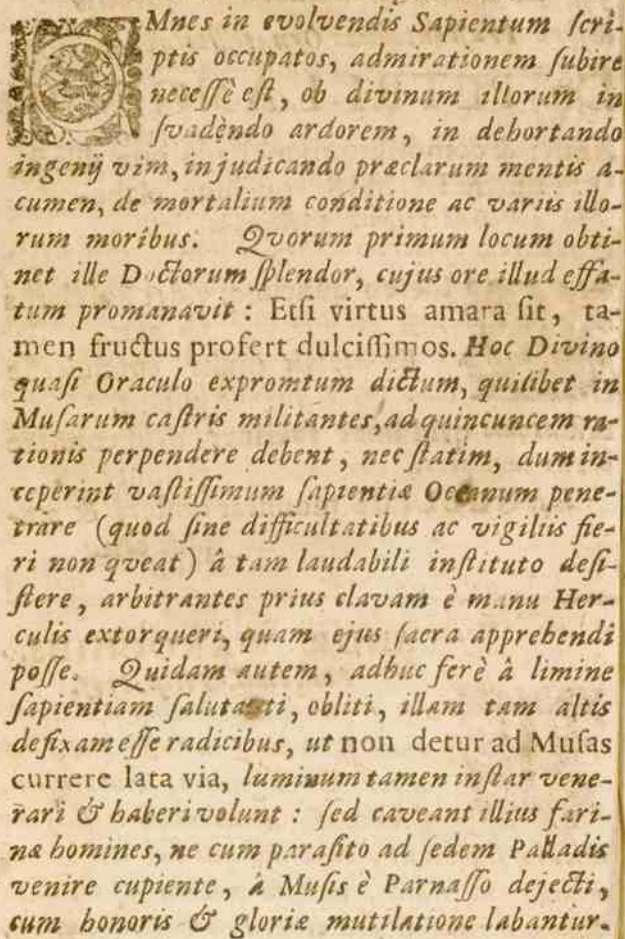 OMnes in evolvendis Sapientum ſcri-
ptis occupatos, admirationem ſubire
neceſſè eſt, ob divinum illorum in
ſvadèndo ardorem, in dehortando
ingenij vim, in judicando præclarum mentis a-
cumen, de mortalium conditione ac variis illo-
rum moribus. Qvorum primum locum obti-
net ille Doctorum ſplendor, cujus ore illud effa-
tum promanavit: Etſi virtus amara ſit, ta-
men fructus profert dulciſſimos. Hoc Divino
quaſi Oraculo expromtum dictum, quilibet in
Muſarum caſtris militantes, ad quincuncem ra-
tionis perpendere debent, nec ſtatim, dum in-
ceperint vaſtiſſimum ſapientiæ Oceanum pene-
trare (quod ſine difficultatibus ac vigiliis fie-
ri non qveat) â tam laudabili inſtituto deſi-
ſtere, arbitrantes prius clavam è manu Her-
culis extorqueri, quam ejus ſacra apprehendi
poſſe. Quidam autem, adhuc ferè â limine
ſapientiam ſalutanti, obliti, illam tam altis
defixam eſſe radicibus, ut non detur ad Muſas
currere lata via, luminum tamen inſtar vene-
rari & haberi volunt: ſed caveant illius fari-
næ homines, ne cum paraſito ad ſedem Palladis
venire cupiente, à Muſis è Parnaſſo dejecti,
cum honoris & gloriæ mutilatione labantur.